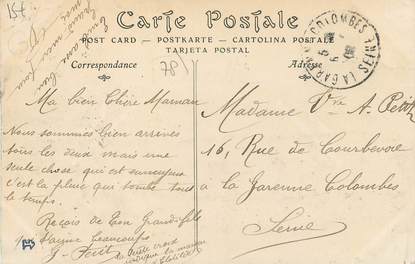 15f
Carte Postale
POST CARD - POSTKARTE - CARTOLINA POSTALE
TARJETA POSTAL
Correspondance
Adresse
781
LA GARENNE COLOMBES
SEINE
Ma bien Chère Maman
Nous sommes bien arrivés
tous les deux mais une
seule chose qui est ennuyeux
c'est la pluie qui tombe tout
le temps.
Reçois de Ton Grand fils
qui t'ayme beaucoup
G. Petit
la petite croix
indique la maison
Madame Vve A. Petit
16, Rue de Courbevoie
a la Garenne Colombes
Seine